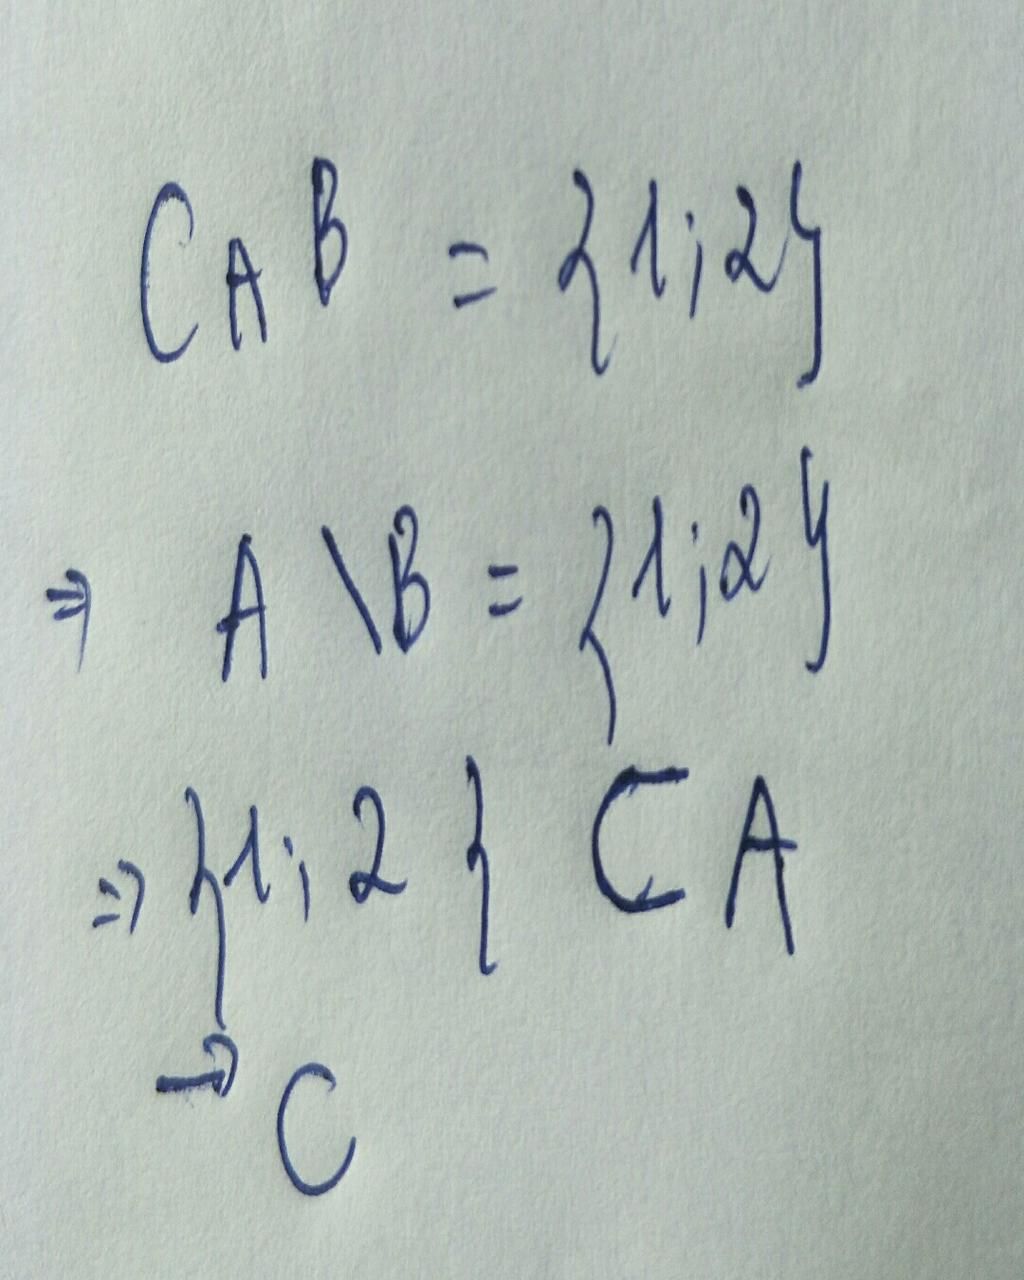 C_A B = {1;2}
⇒ A \ B = {1;2}
⇒ {1;2} ⊂ A
→ C